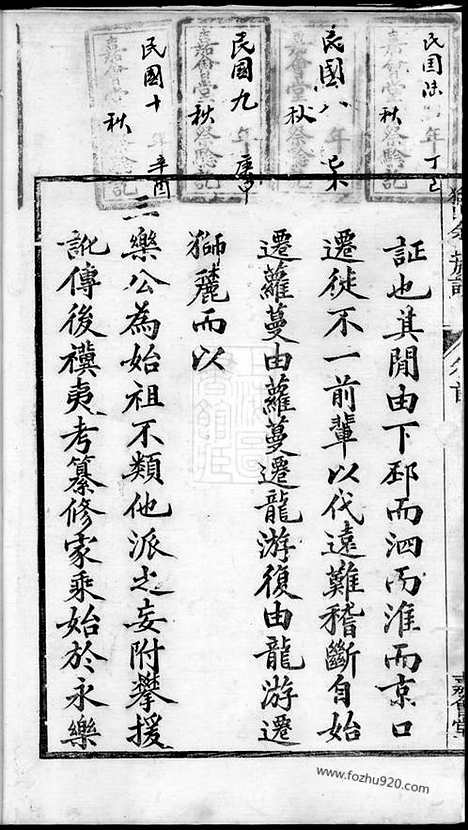 民國八年己未秋
嘉會堂祭驗記
民國九年庚申秋
嘉會堂祭驗記
民國十年辛酉秋
嘉會堂祭驗記
証也其間由下邳而泗而淮而京口
遷徙不一前輩以代遠難稽斷自始
遷蘿蔓由蘿蔓遷龍游復由龍游遷
獅麓而以
三樂公為始祖不類他派之妄附攀援
訛傳後禩夷考纂修家乘始於永樂
卷首
嘉會堂
www.fozhu920.com